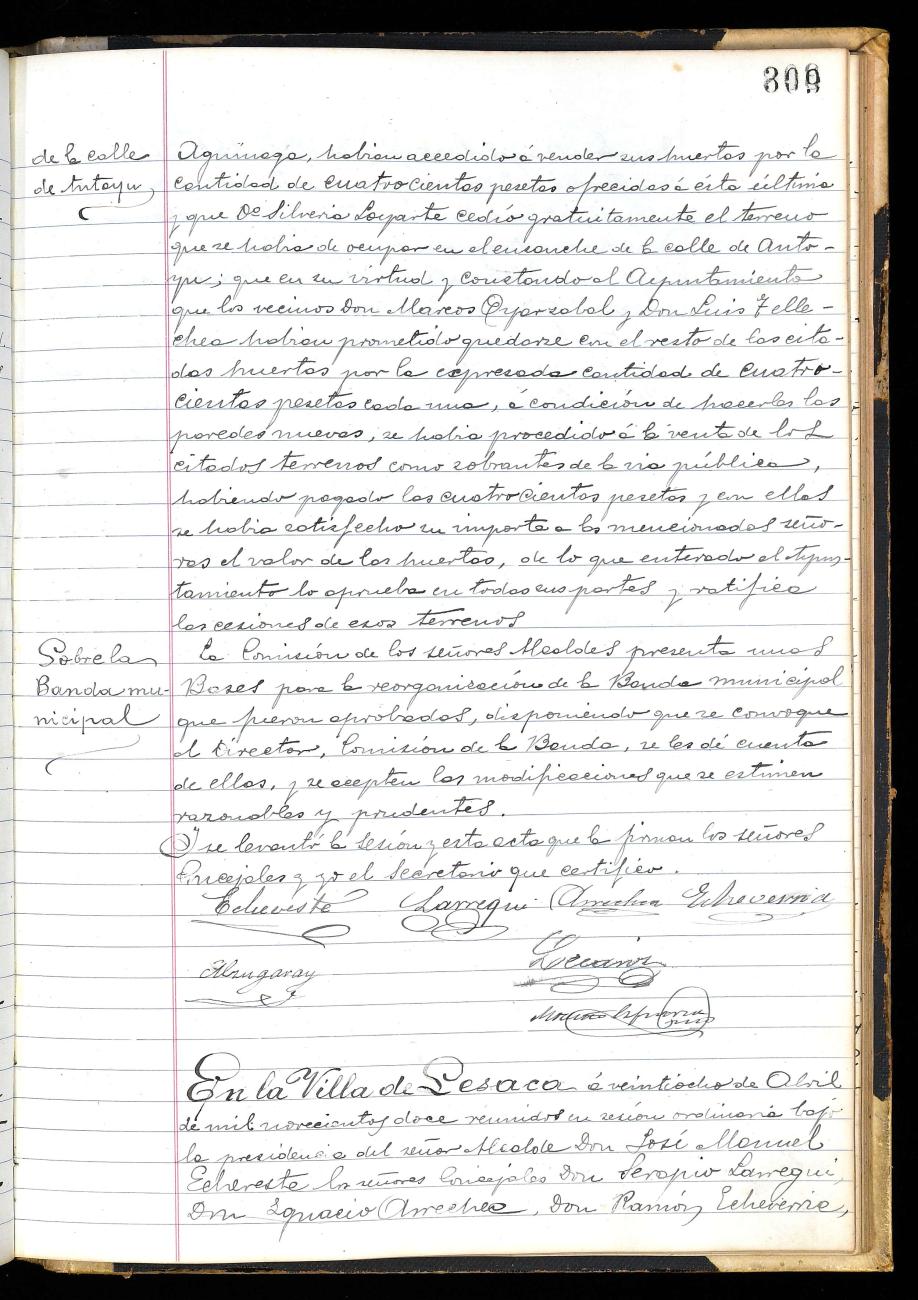 de la calle
de Antoyu
Aguinaga, habian accedido á vender sus huertas por la
cantidad de cuatrocientas pesetas ofrecidas á ésta última
y que Dª Silveria Loyarte cedió gratuitamente el terreno
que se habia de ocupar en el ensanche de la calle de Anto-
yu; que en su virtud y constando al Ayuntamiento
que los vecinos Don Marcos Oyarzabal y Don Luis Telle-
chea habian prometido quedarse con el resto de las cita-
das huertas por la expresada cantidad de cuatro-
cientas pesetas cada una, á condición de hacerlas las
paredes nuevas, se habia procedido á la venta de los
citados terrenos como sobrantes de la via pública,
habiendo pagado las cuatrocientas pesetas y con ellas
se habia satisfecho su importe a las mencionadas seño-
ras el valor de las huertas, de lo que enterado el Ayun-
tamiento lo aprueba en todas sus partes y ratifica
las cesiones de esos terrenos
Sobre la
Banda mu-
nicipal
La Comisión de los señores Alcaldes presenta unas
Bases para la reorganización de la Banda municipal
que fueron aprobadas, disponiendo que se convoque
al Director, Comisión de la Banda, se les dé cuenta
de ellas, y se acepten las modificaciones que se estimen
razonables y prudentes.
Y se levantó la sesión y esta acta que la firman los señores
Concejales y yo el Secretario que certifico.
Echeveste Larregui Arrechea Echeverria
Alzugaray

En la Villa de Lesaca á veintiocho de Abril
de mil novecientos doce reunidos en sesión ordinaria bajo
la presidencia del señor Alcalde Don José Manuel
Echeveste los señores Concejales Don Serapio Larregui,
Don Ignacio Arrechea, Don Ramón Echeverria,